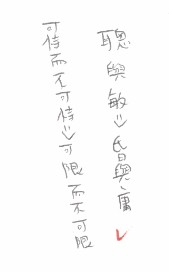 聰與敏⇒昏與庸
可恃而不可恃⇒可限而不可限